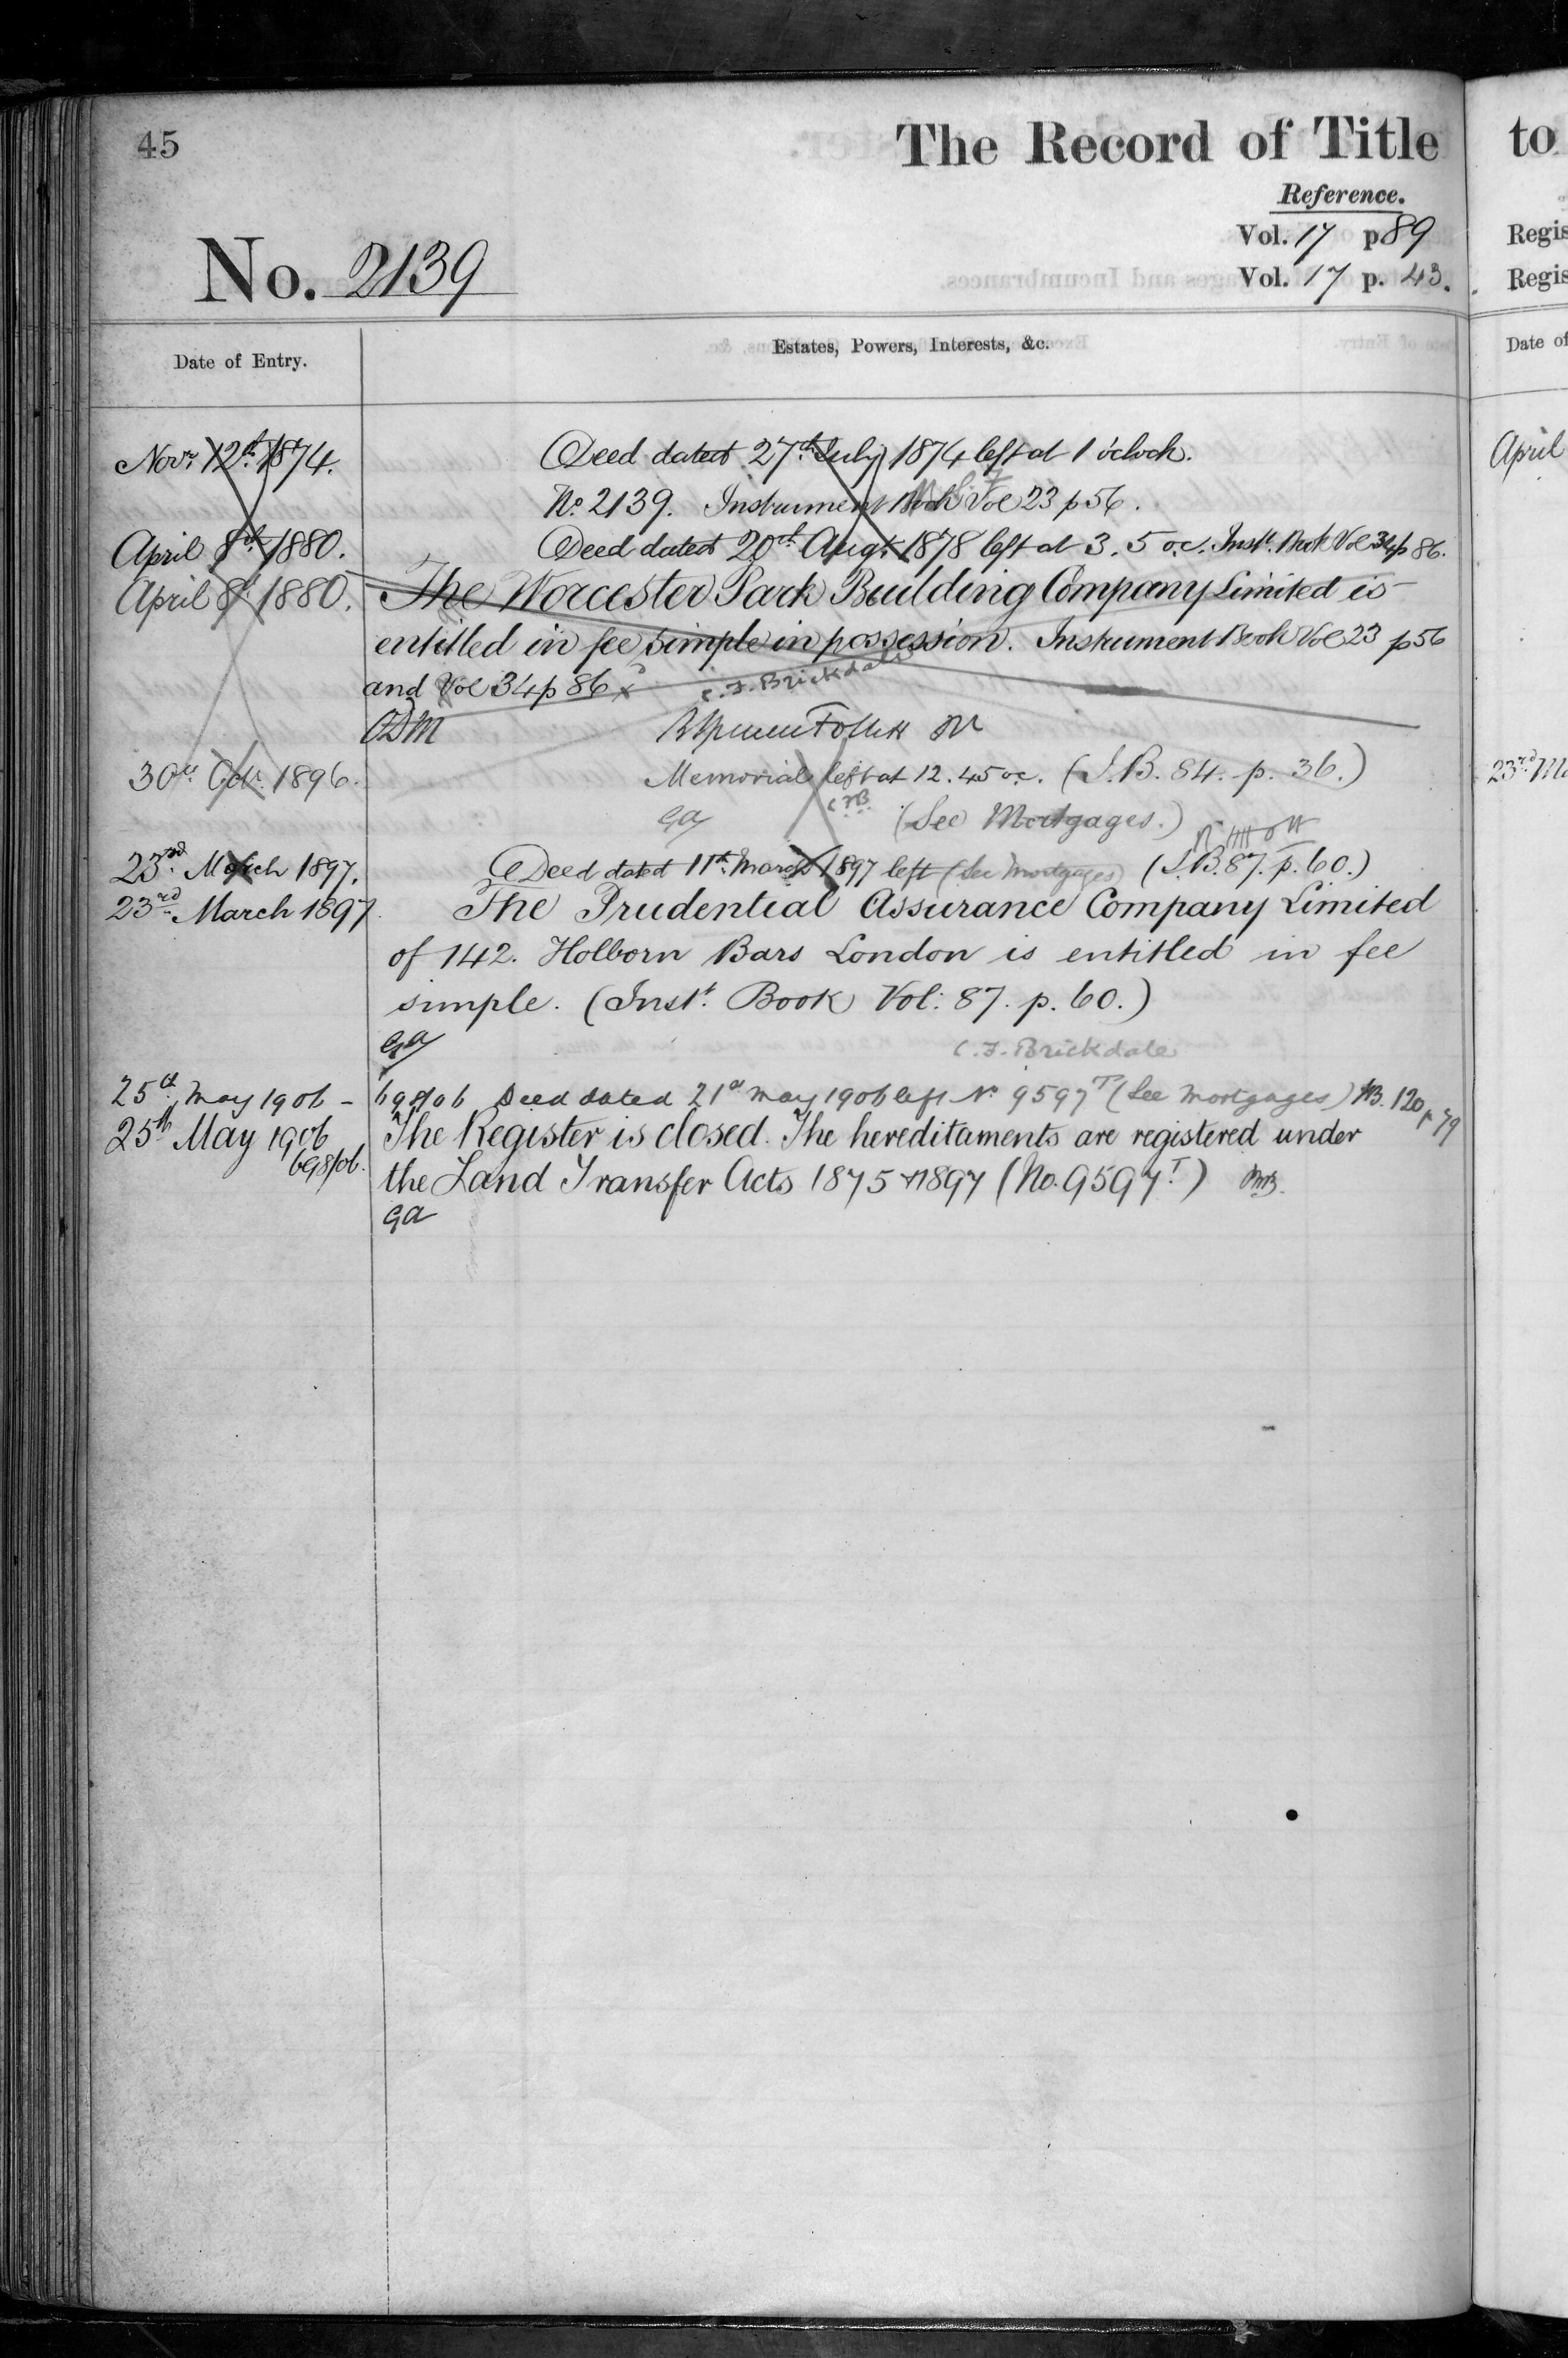 45
The Record of Title
to
Reference.
Vol. 17 p 89
Vol. 17 p. 43.
Regis
Regis
No. 2139
Date of Entry.
Estates, Powers, Interests, &c.
Date of
Novr. 12th 1874. Deed dated 27th July 1874 left at 1 o'clock.
April
No. 2139. Instrument Book Vol 23 p 56.
April 8th 1880. Deed dated 20th Augt. 1878 left at 3.5 oc. Inst. Book Vol 34 p 86.
April 8th 1880. The Worcester Park Building Company Limited is
entitled in fee simple in possession. Instrument Book Vol 23 p 56
and Vol 34 p 86
C. F. Brickdale
30th Octr. 1896. Memorial left at 12.45 oc. (I.B. 84. p. 36.)
GA CFB (See Mortgages.)
23rd Ma
23rd. March 1897. Deed dated 11th March 1897 left (See Mortgages) (I.B. 87. p. 60.)
23rd March 1897. The Prudential Assurance Company Limited
of 142. Holborn Bars London is entitled in fee
simple. (Inst. Book Vol: 87. p. 60.)
GA C. F. Brickdale
25th May 1906 - 698/06 Deed dated 21st May 1906 left No 9597T (See Mortgages) IB. 120 p 79
25th May 1906 The Register is closed. The hereditaments are registered under
698/06. the Land Transfer Acts 1875 & 1897 (No. 9597T)
GA